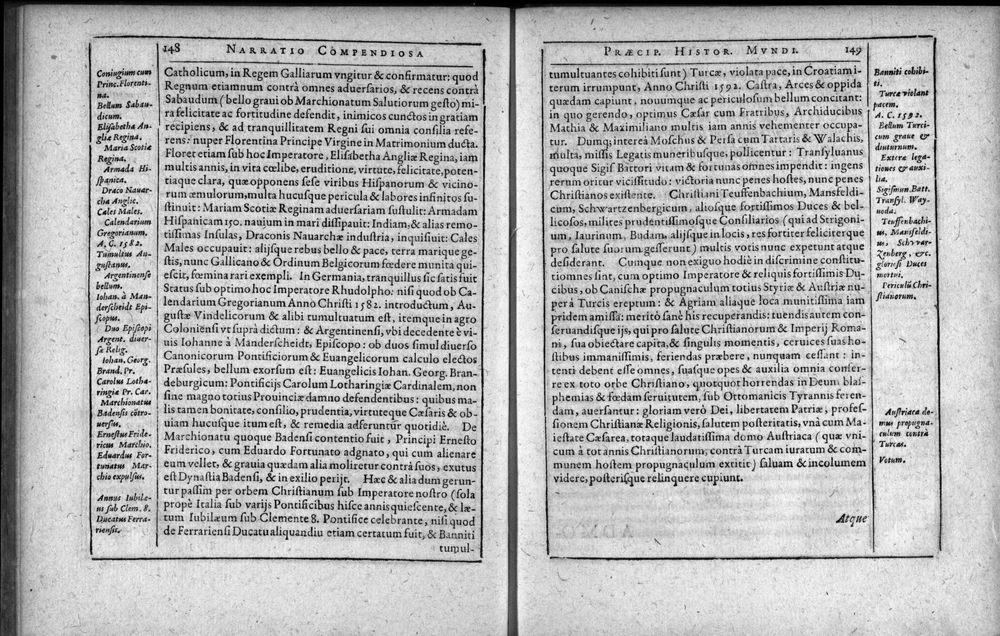 148 NARRATIO COMPENDIOSA
Coniugium cum
Princ. Florenti-
na.
Bellum Sabau-
dicum.
Elisabetha An-
gliæ Regina.
Maria Scotiæ
Regina.
Armada Hi-
spanica.
Draco Nauar-
cha Anglic.
Cales Males.
Calendarium
Gregorianum.
A. C. 1582.
Tumultus Au-
gustanus.
Argentinense
bellum.
Iohan. à Man-
derscheidt Epi-
scopus.
Duo Episcopi
Argent. diuer-
sæ Relig.
Iohan. Georg.
Brand. Pr.
Carolus Lotha-
ringiæ Pr. Car.
Marchionatus
Badensis cõtro-
uersus.
Ernestus Fride-
ricus Marchio.
Eduardus For-
tunatus Mar-
chio expulsus.
Annus Iubilæ-
us sub Clem. 8.
Ducatus Ferra-
riensis.
Catholicum, in Regem Galliarum vngitur & confirmatur: quod
Regnum etiamnum contrà omnes aduersarios, & recens contrà
Sabaudum (bello graui ob Marchionatum Salutiorum gesto) mi-
ra felicitate ac fortitudine defendit, inimicos cunctos in gratiam
recipiens, & ad tranquillitatem Regni sui omnia consilia refe-
rens: nuper Florentina Principe Virgine in Matrimonium ducta.
Floret etiam sub hoc Imperatore, Elisabetha Angliæ Regina, iam
multis annis, in vita cœlibe, eruditione, virtute, felicitate, poten-
tiaque clara, quæ opponens sese viribus Hispanorum & vicino-
rum æmulorum, multa hucusque pericula & labores infinitos su-
stinuit: Mariam Scotiæ Reginam aduersariam sustulit: Armadam
Hispanicam 150. nauium in mari dissipauit: Indiam, & alias remo-
tissimas Insulas, Draconis Nauarchæ industria, inquisiuit: Cales
Males occupauit: alijsque rebus bello & pace, terra marique ge-
stis, nunc Gallicano & Ordinum Belgicorum fœdere munita qui-
escit, fœmina rari exempli. In Germania, tranquillus sic satis fuit
Status sub optimo hoc Imperatore Rhudolpho: nisi quod ob Ca-
lendarium Gregorianum Anno Christi 1582. introductum, Au-
gustæ Vindelicorum & alibi tumultuatum est, itemque in agro
Coloniensi vt suprà dictum: & Argentinensi, vbi decedente è vi-
uis Iohanne à Manderscheidt, Episcopo: ob duos simul diuerso
Canonicorum Pontificiorum & Euangelicorum calculo electos
Præsules, bellum exorsum est: Euangelicis Iohan. Georg. Bran-
deburgicum: Pontificijs Carolum Lotharingiæ Cardinalem, non
sine magno totius Prouinciæ damno defendentibus: quibus ma-
lis tamen bonitate, consilio, prudentia, virtuteque Cæsaris & ob-
uiam hucusque itum est, & remedia adferuntur quotidiè. De
Marchionatu quoque Badensi contentio fuit, Principi Ernesto
Friderico, cum Eduardo Fortunato adgnato, qui cum alienare
eum vellet, & grauia quædam alia moliretur contrà suos, exutus
est Dynastia Badensi, & in exilio perijt. Hæc & alia dum gerun-
tur passim per orbem Christianum sub Imperatore nostro (sola
propè Italia sub varijs Pontificibus hisce annis quiescente, & læ-
tum Iubilæum sub Clemente 8. Pontifice celebrante, nisi quod
de Ferrariensi Ducatu aliquandiu etiam certatum fuit, & Banniti
tumul-
PRÆCIP. HISTOR. MVNDI. 149
tumultuantes cohibiti sunt) Turcæ, violata pace, in Croatiam i-
terum irrumpunt, Anno Christi 1592. Castra, Arces & oppida
quædam capiunt, nouumque ac periculosum bellum concitant:
in quo gerendo, optimus Cæsar cum Fratribus, Archiducibus
Mathia & Maximiliano multis iam annis vehementer occupa-
tur. Dumq; interea Moschus & Persa cum Tartaris & Walachis,
multa, missis Legatis muneribusque, pollicentur: Transyluanus
quoque Sigism Battori vitam & fortunas omnes impendit: ingens
rerum oritur vicissitudo: victoria nunc penes hostes, nunc penes
Christianos existente. Christiani Teuffenbachium, Mansfeldi-
cum, Schwartzenbergicum, aliosque fortissimos Duces & bel-
licosos, milites prudentissimosque Consiliarios (qui ad Strigoni-
um, Iaurinum, Budam, alijsque in locis, res fortiter feliciterque
pro salute suorum gesserunt) multis votis nunc expetunt atque
desiderant. Cumque non exiguo hodiè in discrimine constitu-
ti omnes sint, cum optimo Imperatore & reliquis fortissimis Du-
cibus, ob Canischæ propugnaculum totius Styriæ & Austriæ nu-
per à Turcis ereptum: & Agriam aliaque loca munitissima iam
pridem amissa: meritò sanè his recuperandis: tuendis autem con-
seruandisque ijs, qui pro salute Christianorum & Imperij Roma-
ni, sua obiectare capita, & singulis momentis, ceruices suas ho-
stibus immanissimis, feriendas præbere, nunquam cessant: in-
tenti debent esse omnes, suasque opes & auxilia omnia confer-
re ex toto orbe Christiano, quotquot horrendas in Deum blas-
phemias & fœdam seruitutem, sub Ottomanicis Tyrannis feren-
dam, auersantur: gloriam verò Dei, libertatem Patriæ, profes-
sionem Christianæ Religionis, salutem posteritatis, vnà cum Ma-
iestate Cæsarea, totaque laudatissima domo Austriaca (quæ vni-
cum à tot annis Christianorum, contrà Turcam iuratum & com-
munem hostem propugnaculum extitit) saluam & incolumem
videre, posterisque relinquere cupiunt.
Atque
Banniti cohibi-
ti.
Turcæ violant
pacem.
A. C. 1592.
Bellum Turci-
cum graue &
diuturnum.
Exteræ lega-
tiones & auxi-
lia.
Sigismun. Batt.
Transyl. Way-
uoda.
Teuffenbachi-
us, Mansfeldi-
us, Schvvar-
zenberg, &c.
gloriosi Duces
mortui.
Periculũ Chri-
stianorum.
Austriaca do-
mus propugna-
culum contrà
Turcas.
Votum.